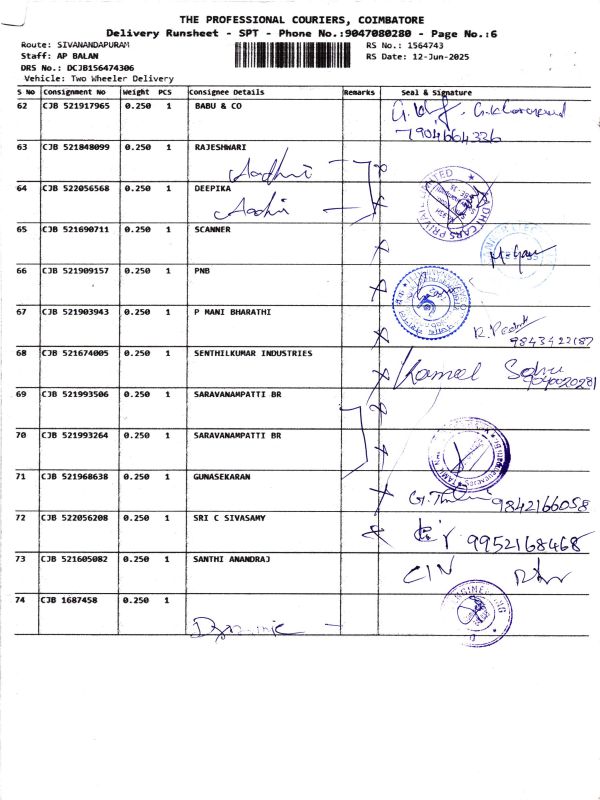 THE PROFESSIONAL COURIERS, COIMBATORE
Delivery Runsheet - SPT - Phone No.:9047080280 - Page No.:6
Route: SIVANANDAPURAM RS No.: 1564743
Staff: AP BALAN RS Date: 12-Jun-2025
DRS No.: DCJB156474306
Vehicle: Two Wheeler Delivery
S No Consignment No Weight PCS Consignee Details Remarks Seal & Signature
62 CJB 521917965 0.250 1 BABU & CO
7904664336
63 CJB 521848099 0.250 1 RAJESHWARI
Aadhri
64 CJB 522056568 0.250 1 DEEPIKA
Aadhri
65 CJB 521690711 0.250 1 SCANNER
66 CJB 521909157 0.250 1 PNB
67 CJB 521903943 0.250 1 P MANI BHARATHI
9843422187
68 CJB 521674005 0.250 1 SENTHILKUMAR INDUSTRIES
Kamal
69 CJB 521993506 0.250 1 SARAVANAMPATTI BR
70 CJB 521993264 0.250 1 SARAVANAMPATTI BR
71 CJB 521968638 0.250 1 GUNASEKARAN
9842166058
72 CJB 522056208 0.250 1 SRI C SIVASAMY
9952168468
73 CJB 521605082 0.250 1 SANTHI ANANDRAJ
74 CJB 1687458 0.250 1
Dynamic